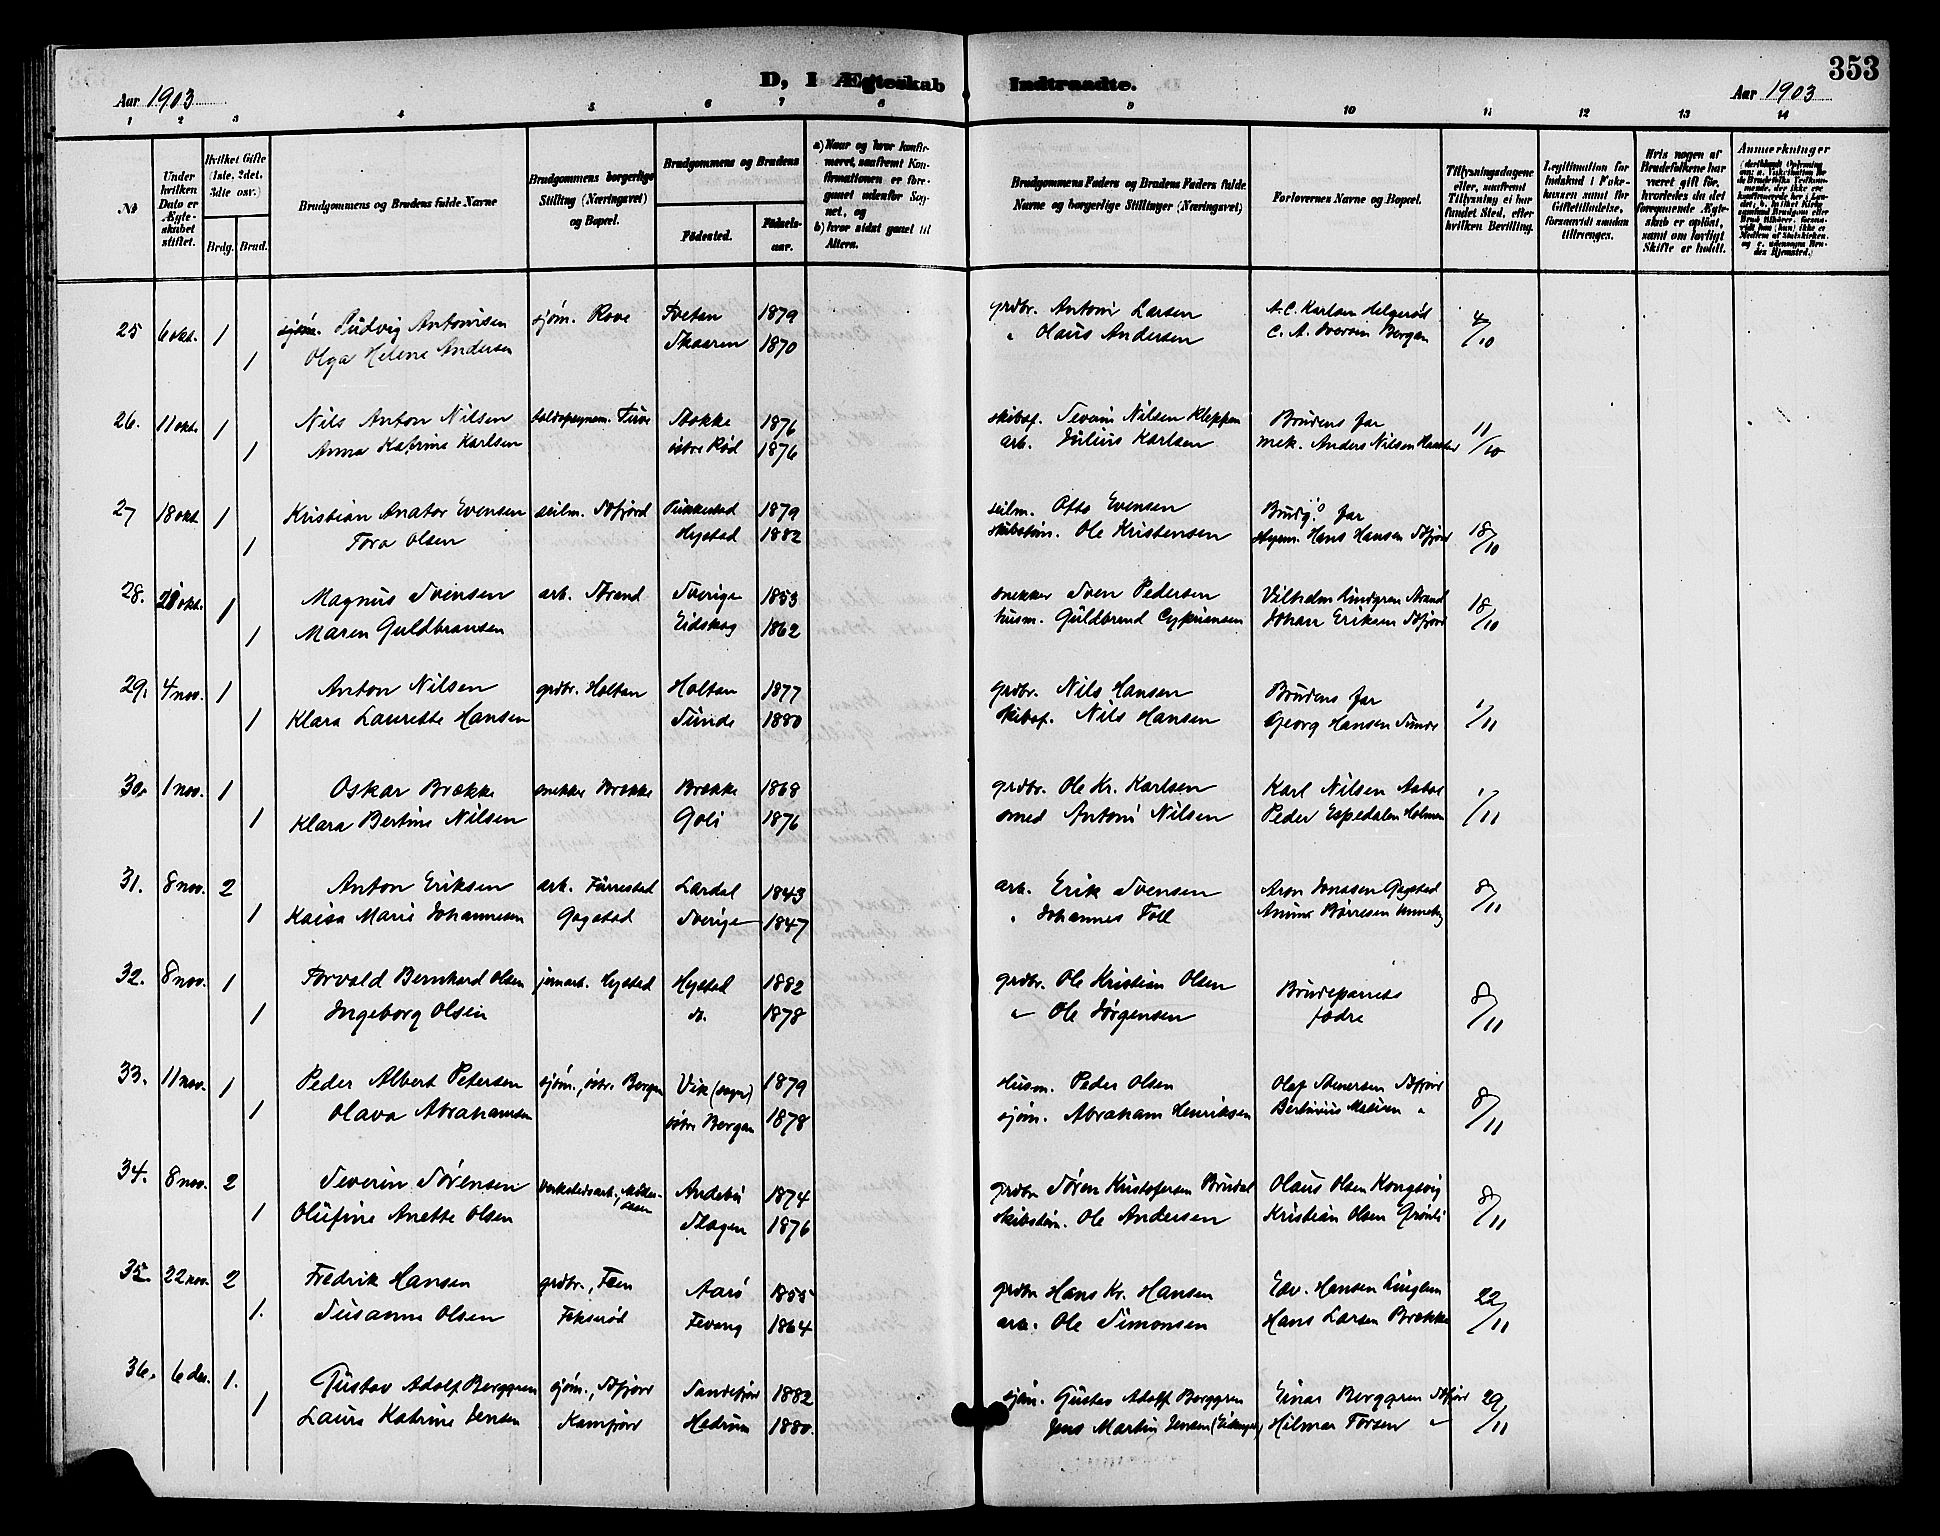 353
D, I Ægteskab Indtraadte.
Aar 1903
Aar 1903
1 2 3 4 5 6 7 8 9 10 11 12 13 14
No
Under hvilken Dato er Ægteskabet stiftet.
Hvilket Gifte (1ste, 2det, 3die osv.)
Brdg. Brud.
Brudgommens og Brudens fulde Navne
Brudgommens borgerlige Stilling (Næringsvei) og Bopæl.
Brudgommens og Brudens
Fødested. Fødselsaar.
a) Naar og hvor konfirmeret, naafremt Konfirmationen er foregaaet udenfor Sognet, og
b) hvor sidst gaaet til Alters.
Brudgommens Faders og Brudens Faders fulde Navne og borgerlige Stillinger (Næringsvei)
Forlovernes Navne og Bopæl.
Tillysningsdagene eller, naafremt Tillysning ei har fundet Sted, efter hvilken Bevilling.
Legitimation for Indskud i Enkekassen samt for Giftetilladelse, forsaavidt saadan tiltrænges.
Hvis nogen af Brudefolkene har været gift før, hvorledes da det foregaaende Ægteskab er opløst, samt om lovligt Skifte er holdt.
Anmærkninger
25 6 okt. 1 sjøm. Ludvig Antonisen sjøm. Rove Tvetan 1879 grdbr. Anton Larsen A. C. Karlsen Helgerød 4/10
1 Olga Helene Andersen Skaaren 1870 " Olaus Andersen C. A. Iversen Bergan
26. 11 okt. 1 Nils Anton Nilsen Stokke 1876 skibsf. Severin Nilsen Kleppan Brudens far 11/10
1 Anna Katrine Karlsen østre Rød 1876 arb. Julius Karlsen mek. Anders Nilsen
27 18 okt 1 Kristian Anator Evensen seilm. Sfjord Pukkestad 1879 seilm. Otto Evensen Brudg.s far 18/10
1 Tora Olsen Hystad 1882 skibstøm. Ole Kristensen Hans Hansen Sfjord
28. 20 okt. 1 Magnus Svensen arb. Strand Sverige 1853 snekker Sven Pedersen Vilhelm Lindgren Strand 18/10
1 Maren Guldbransen Eidskog 1862 husm. Guldbrand Cypriansen Johan Eriksen Sfjord
29. 4 nov. 1 Anton Nilsen grdbr. Holtan Holtan 1877 grdbr. Nils Hansen Brudens far 1/11
1 Klara Laurette Hansen Sunde 1880 skibsf. Nils Hansen Georg Hansen Sunde
30. 1 nov. 1 Oskar Brække snekker Brække Brække 1868 grdbr. Ole Kr. Karlsen Karl Nilsen 1/11
1 Klara Bertine Nilsen Goli 1876 smed Anton Nilsen Peder Espedalen Holmen
31. 8 nov. 2 Anton Eriksen arb. Furrestad Lardal 1843 arb. Erik Svensen Aron Jonassen Gogstad 8/11
1 Kaisa Marie Johannesen Gogstad Sverige 1847 " Johannes Toll Børresen Unneberg
32. 8 nov. 1 Torvald Bernhard Olsen jernarb. Hystad Hystad 1882 grdbr. Ole Kristian Olsen Brudeparrets 8/11
1 Ingeborg Olsen do. 1878 " Ole Jørgensen fædre
33. 11 nov. 1 Peder Albert Petersen sjøm., østre Bergan Vik (sogn) 1879 Husm. Peder Olsen Olaf Stenersen Sfjord 8/11
1 Olava Abrahamsen østre Bergan 1878 sjøm. Abraham Henriksen Bertinius Madsen "
34. 8 nov. 2 Severin Sørensen verkstedsarb., Andebu 1874 grdbr Søren Kristofersen Brudal Olaus Olsen Kongsvig 8/11
1 Olufine Anette Olsen Slagen 1876 skibstøm. Ole Andersen Kristian Olsen Grønli
35. 22 nov. 2 Fredrik Hansen grdbr., Fæn Aarø 1855 grdbr Hans Kr. Hansen Edv. Hansen Lingelem 22/11
1. Susanne Olsen Fekserød Fevang 1864 arb. Ole Simonsen Hans Larsen Brække
36. 6 des. 1. Gustav Adolf Berggren sjøm., Sfjord Sandefjord 1882 sjøm. Gustav Adolf Berggren Einar Berggren Sfjord 29/11
1 Laura Katrine Jensen Kamfjord Hedrum 1880. Jens Martin Jensen Hilmar Torsen "